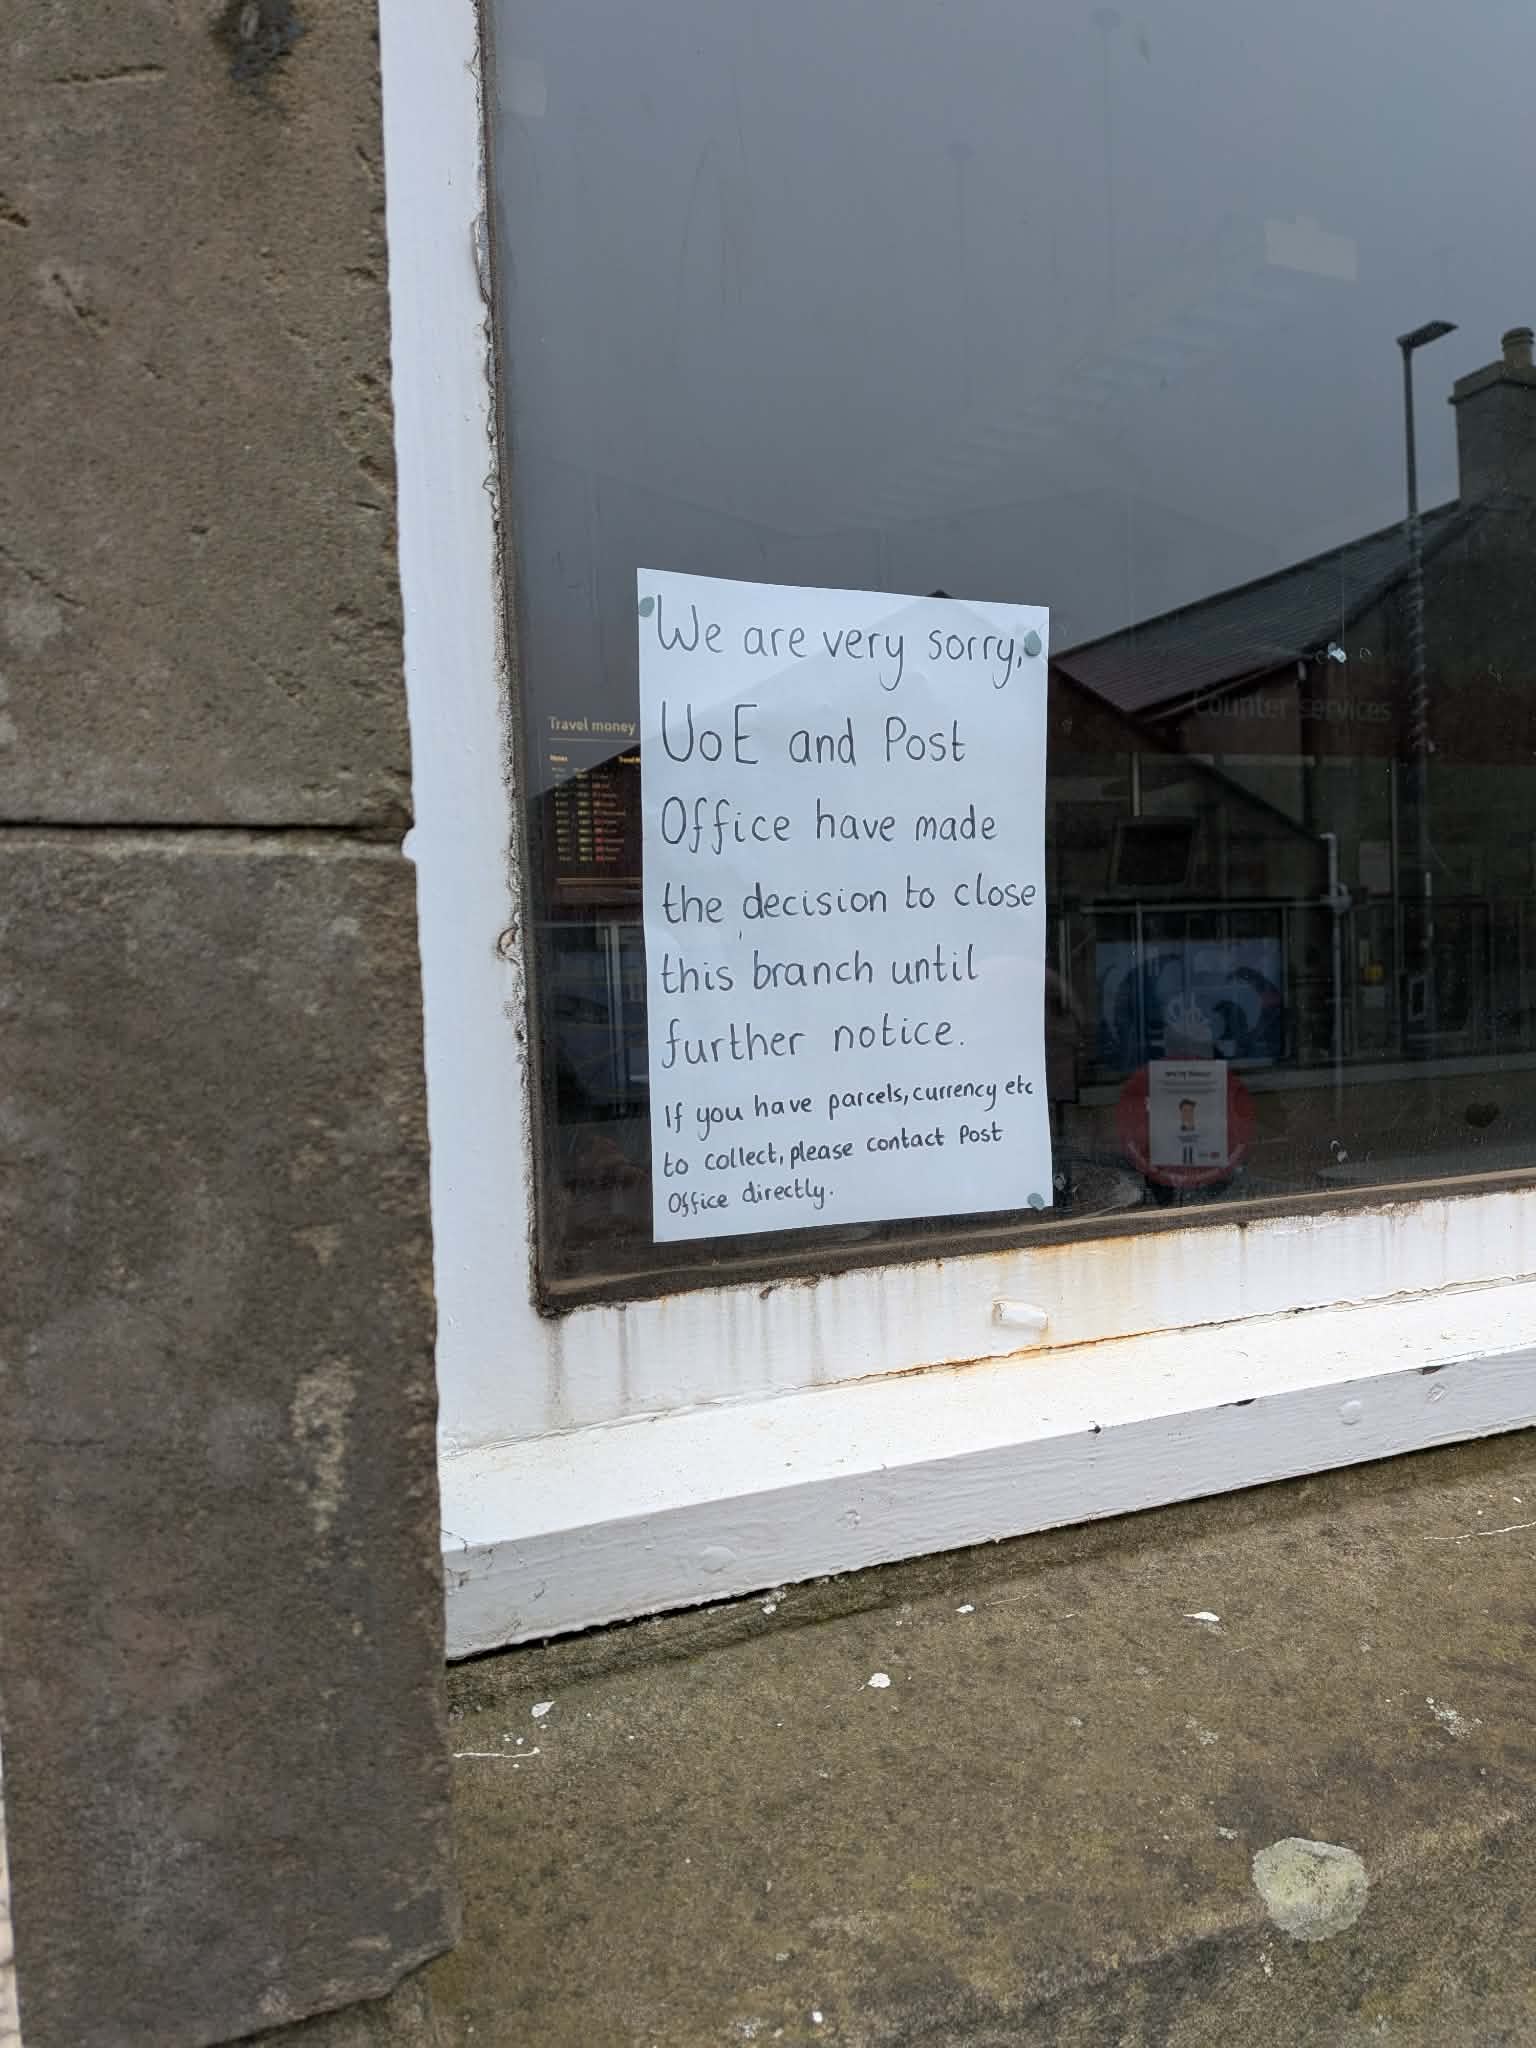 We are very sorry,
UoE and Post
Office have made
the decision to close
this branch until
further notice.
If you have parcels, currency etc
to collect, please contact Post
Office directly.
Travel money
Counter services